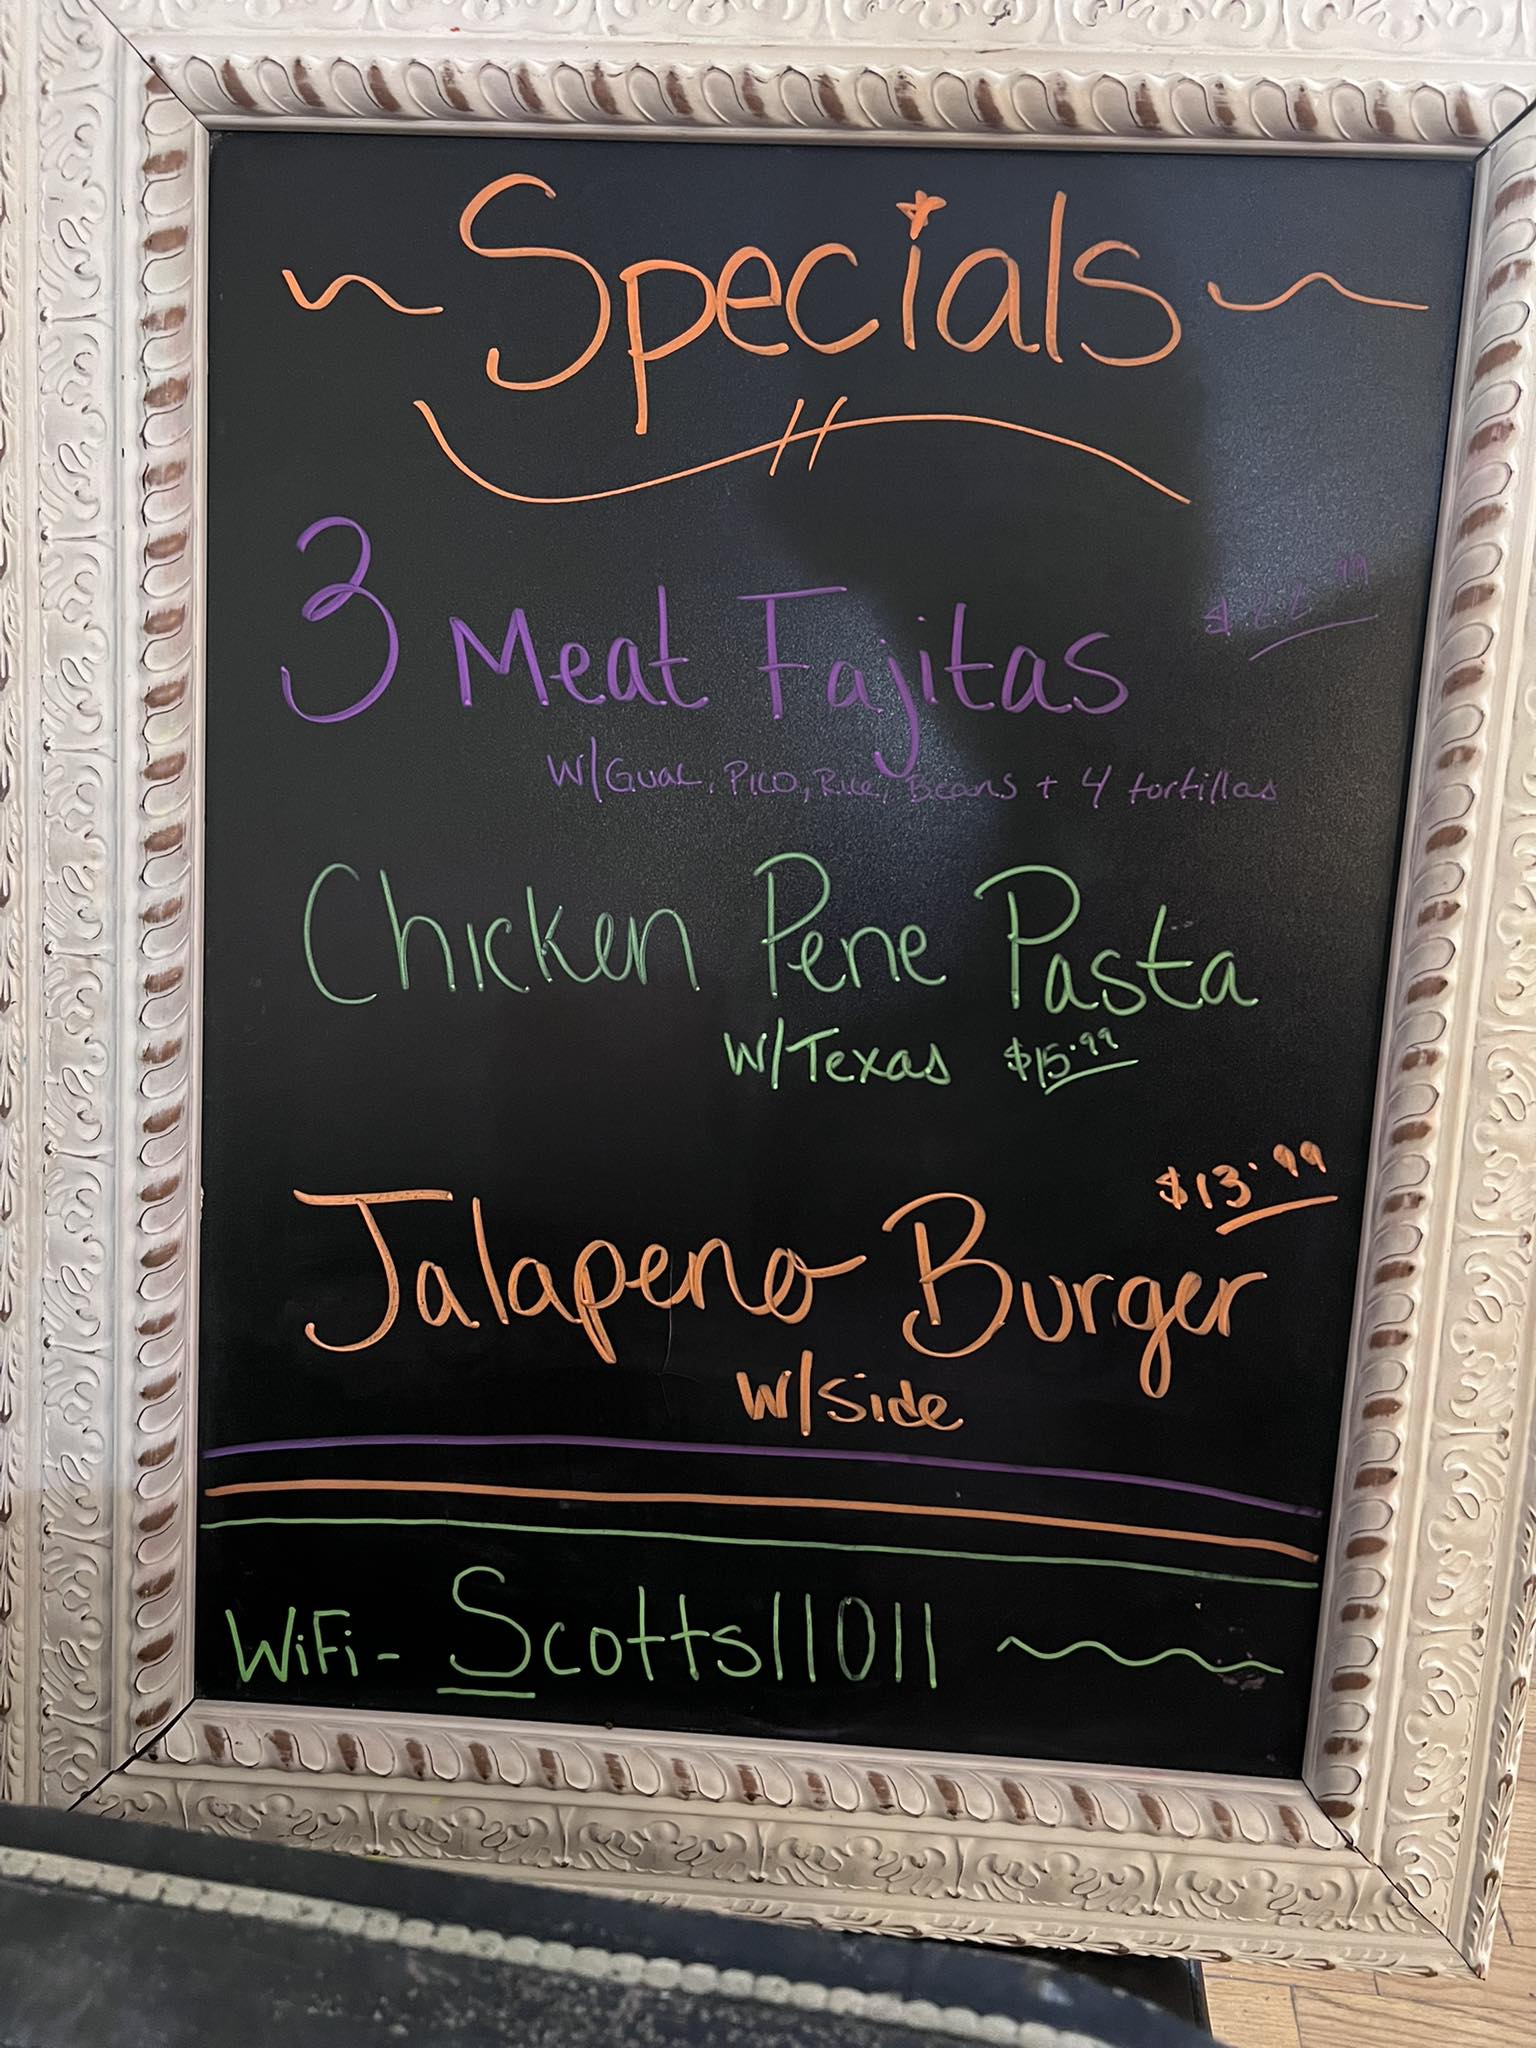 ~ Specials ~
3 Meat Fajitas $22.99
W/Guac, Pico, Rice, Beans + 4 tortillas
Chicken Pene Pasta
W/Texas $15.99
$13.99
Jalapeno Burger
W/Side
WiFi - Scotts11011